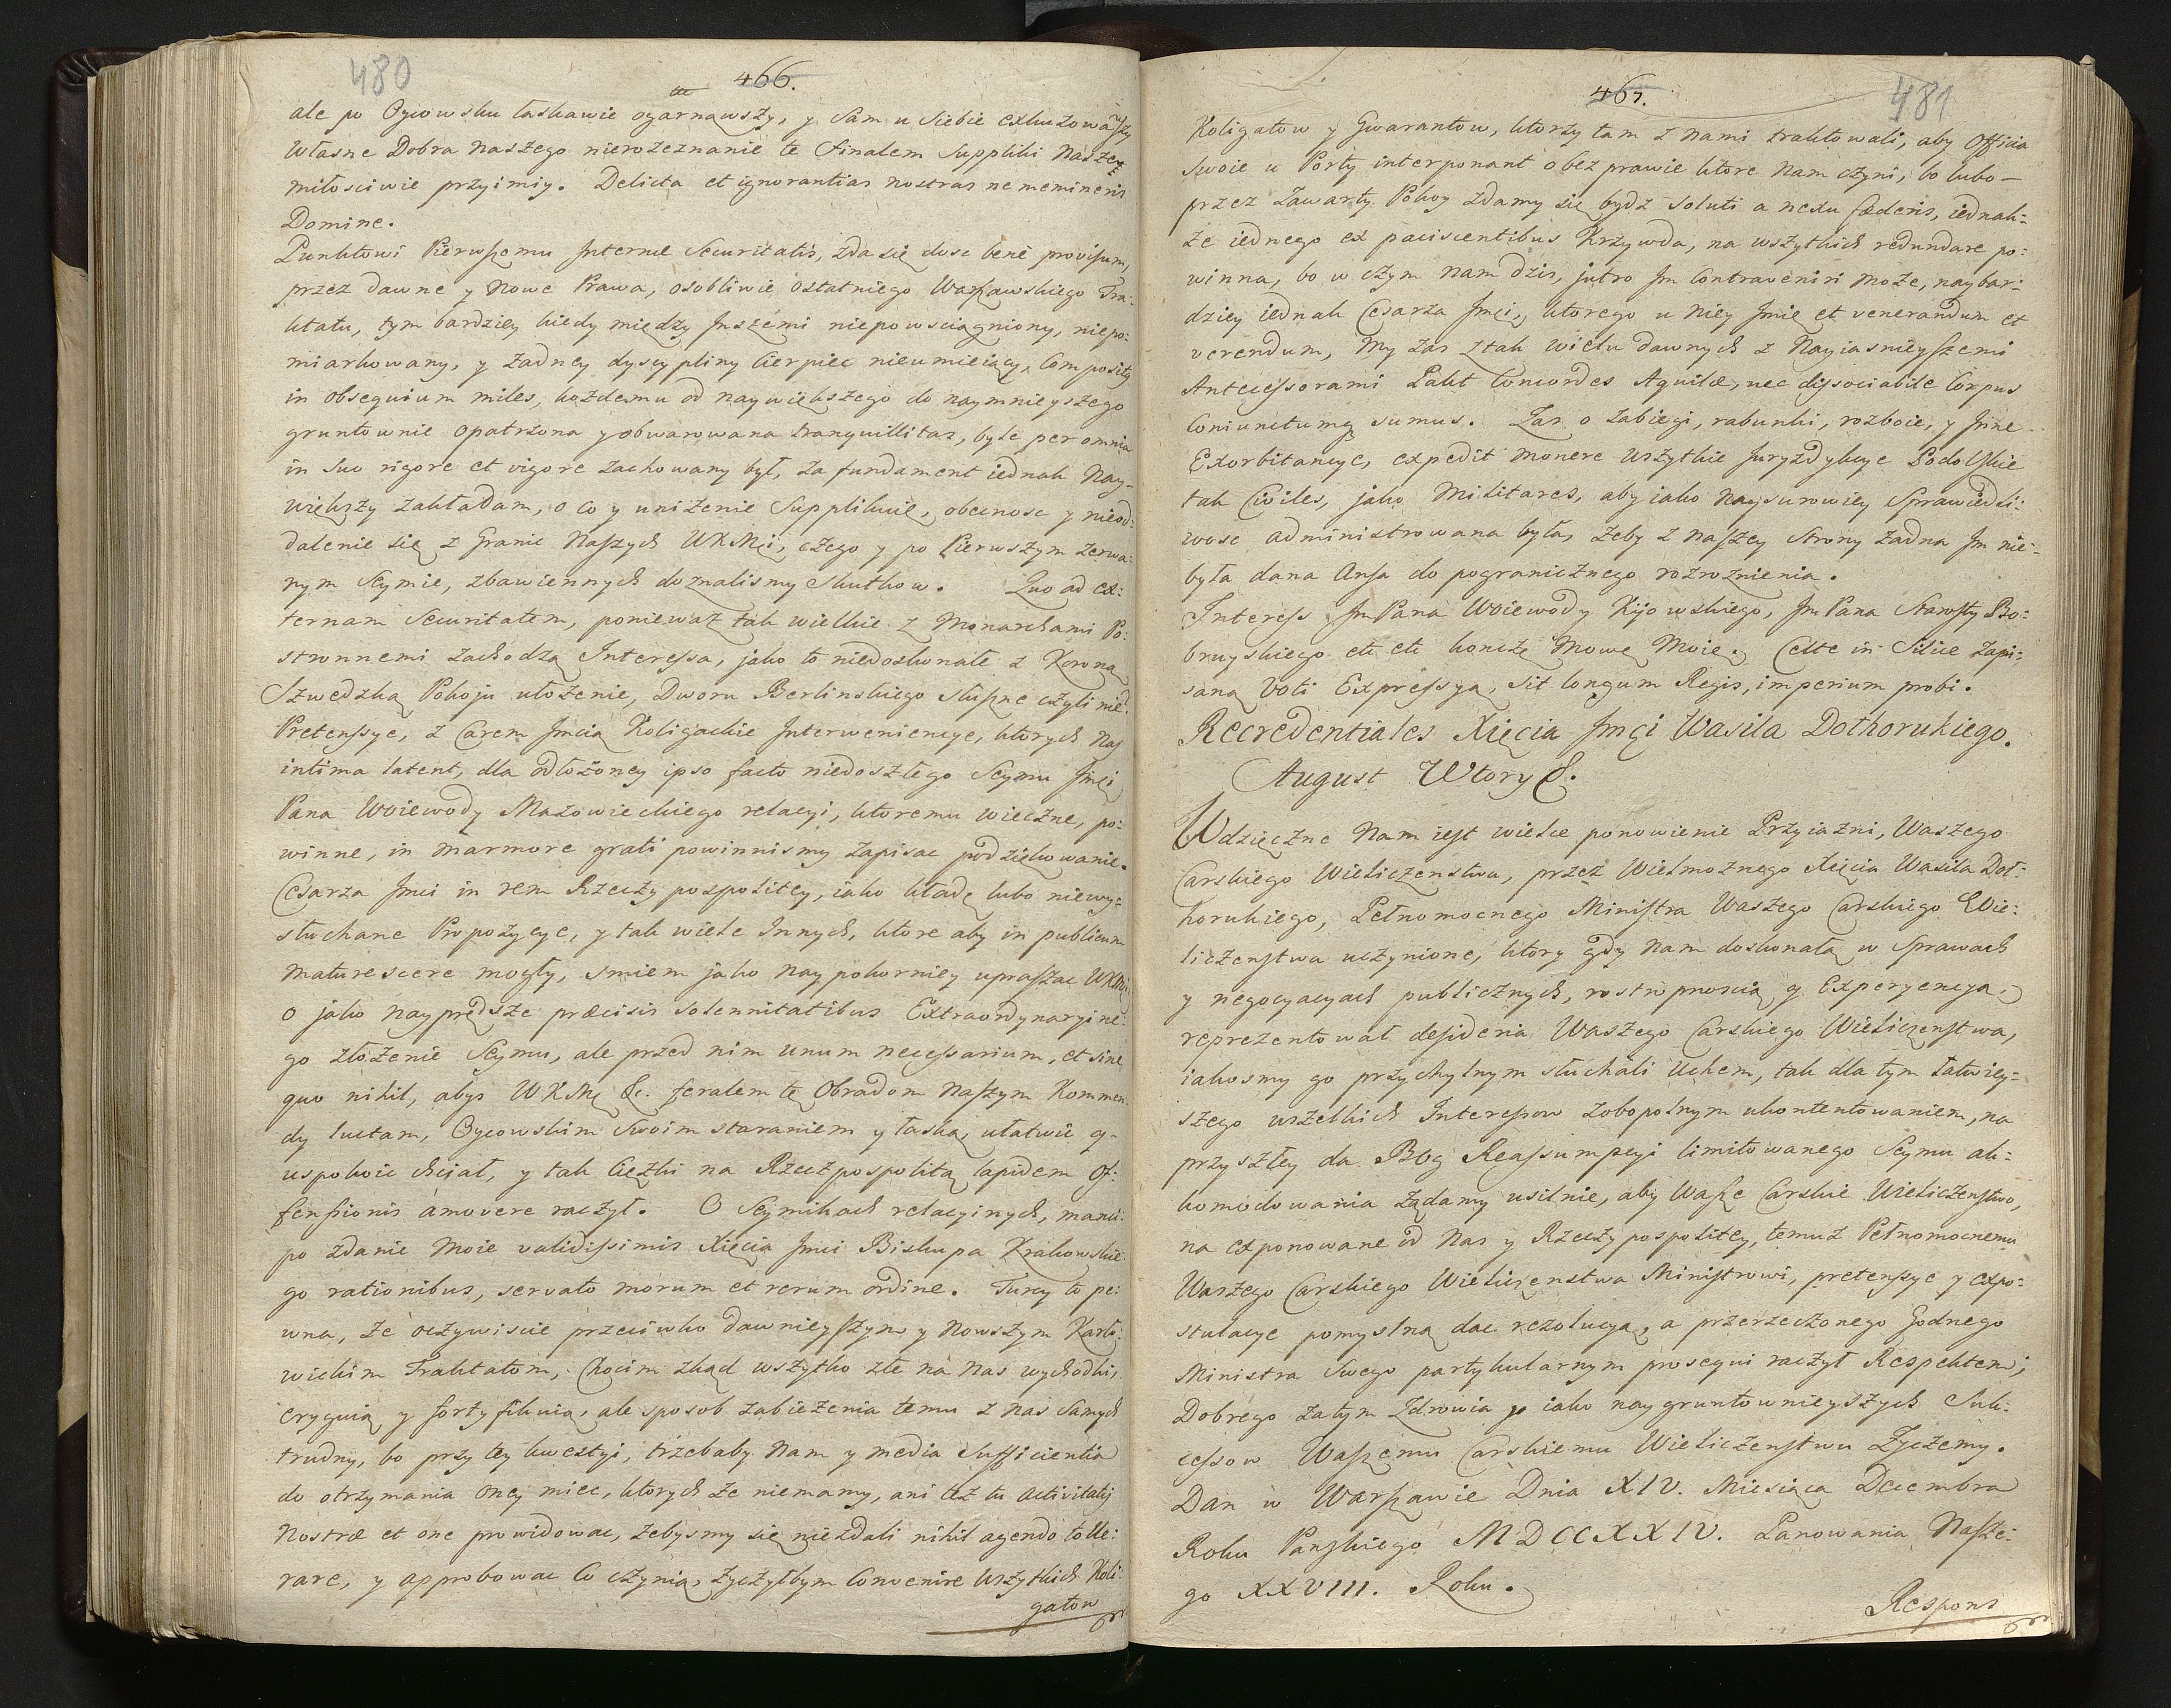 480
466.
ale po Oycowsku łaskawie ogarnąwszy, y Sam u Siebie exkuzowawszy
Własne Dobra Naszego nierozeznanie te finalem Suppliki Naszey
miłosciwie przyimiy. Delicta et ignorantias nostras ne memineris
Domine.
Punktowi Pierwszemu Internæ Securitatis, zda się dosc bene provisum,
przez dawne y Nowe Prawa, osobliwie ostatniego Warszawskiego Tra-
ktatu, tym bardziey kiedy między Inszemi niepowsciągniony, niepo-
miarkowany, y żadney dyscypliny cierpiec nieumieiący, Compositus
in obsequium miles, każdemu od naywiększego do naymnieyszego
gruntownie opatrzona y obwarowana tranquillitas, byle per omnia
in suo rigore et vigore zachowany był, za fundament iednak Nay-
większy zakładam, o co y uniżenie Supplikuię, obecnosc y nieod-
dalenie się z Granic Naszych WKMci, czego y po Pierwszym zerwa-
nym Seymie, zbawiennych doznalismy Skutkow. Quo ad ex-
ternam Securitatem, ponieważ tak wielkie z Monarchami Po-
stronnemi zachodzą Interessa, jako to niedoskonałe z Koroną
Szwedzką Pokoju ułożenie, Dworu Berlinskiego słuszne czyli nie
Pretensye, z Carem Jmcią Koligackie Interweniencye, ktorych Nas
intima latent, dla odłożoney ipso facto niedoszłego Seymu Jmci
Pana Woiewody Mazowieckiego relacyi, ktoremu wieczne, po-
winne, in marmore grati powinnismy zapisac podziękowanie.
Cesarza Jmci in rem Rzeczypospolitey, iako kładę lubo niewy-
słuchane Propozycye, y tak wiele Innych, ktore aby in publicum
maturescere mogły, smiem jako naypokorniey upraszac WKMci
o jako nayprędsze præcisis solennitatibus Extraordynaryine-
go złożenie Seymu, ale przed nim unum necessarium, et sine
quo nihil, abys WKMć &c. feralem tę Obradom Naszym Kommen-
dy luctam, Oycowskim Swoim staraniem y łaską ułatwic y
uspokoic chciał, y tak ciężki na Rzeczpospolitą lapidem of-
fensionis amovere raczył. O Seymikach relacyinych, manu-
po zdanie Moie validissimis Xięcia Jmci Biskupa Krakowskie-
go rationibus, servato morum et rerum ordine. Turcy to pe-
wna, że oczywiscie przeciwko dawnieyszym y Nowszym Karło-
wickim Traktatom, Chocim zkąd wszytko złe na Nas wychodzi,
eryguią y fortyfikuią, ale sposob zabieżenia temu z nas Samych
trudny, bo przy tey kwestyi, trzebaby Nam y media Sufficientia
do otrzymania oney miec, ktorych że niemamy, ani też tu activitatis
Nostræ et one prowidowac, żebysmy się niezdali nihil agendo tolle-
rare, y approbowac co czynią, życzyłbym Convenire Wszytkich Koli-
gatow
481
467.
Koligatow y Gwarantow, ktorzy tam z nami traktowali, aby Officia
swoie u Porty interponant o bezprawie ktore Nam czyni, bo lubo
przez Zawarty Pokoy zdamy się bydz soluti a nexu fæderis, iednak-
że iednego ex paciscentibus Krzywda, na wszytkich redundare po-
winna, bo w czym Nam dzis, jutro Im Contraveniri może, naybar-
dziey iednak Cesarza Jmci, ktorego u Niey Imię et venerandum et
verendum, My zas z tak wielu dawnych z Nayiasnieyszemi
Antecessorami Pakt Concordes Aquilæ, nec dissociabile Corpus
Coniunctumq sumus. Zas o zabiegi, rabunki, rozboie, y Inne
Exorbitancye, expedit monere wszytkie Juryzdykcye Podolskie
tak Civiles, jako Militares, aby iako naysurowiey Sprawiedli-
wosc administrowana była, żeby z naszey Strony żadna Im nie-
była dana Ansa do pogranicznego rozroznienia.
Interess Jm Pana Woiewody Kijowskiego, Jm Pana Starosty Bo-
bruyskiego etc etc kończę Mowę Moię. Celte in Silice zapi-
saną Voti Expressyą, sit longum Regis, imperium probi.
Recredentiales Xięcia Jmci Wasila Dołhorukiego.
August Wtory &.
Wdzięczne Nam iest wielce ponowienie Przyiazni, Waszego
Carskiego Wieliczenstwa, przez Wielmożnego Xięcia Wasila Doł-
horukiego, Pełnomocnego Ministra Waszego Carskiego Wie-
liczenstwa uczynione, ktory gdy Nam doskonałą w Sprawach
y negocyacyach publicznych, rostropnoscią y Experyencyą,
reprezentował desideria Waszego Carskiego Wieliczenstwa,
iakosmy go przychylnym słuchali Uchem, tak dla tym łatwiey-
szego wszelkich Interessow zobopolnym ukontentowaniem, na
przyszłey da Bog Reassumpcyi limitowanego Seymu ak-
komodowania żądamy usilnie, aby Wasze Carskie Wieliczenstwo,
na exponowane od Nas y Rzeczypospolitey, temuż Pełnomocnemu
Waszego Carskiego Wieliczenstwa Ministrowi, pretensye y expo-
stulacye pomyslną dac rezolucyą, a przerzeczonego Godnego
Ministra Swego partykularnym prosequi raczył Respektem;
Dobrego zatym Zdrowia y iako naygruntownieyszych Suk-
cessow Waszemu Carskiemu Wieliczenstwu Życzemy.
Dan w Warszawie Dnia XIV. Miesiąca Decembra
Roku Panskiego MDCCXXIV. Panowania Nasze-
go XXVIII. Roku.
Respons